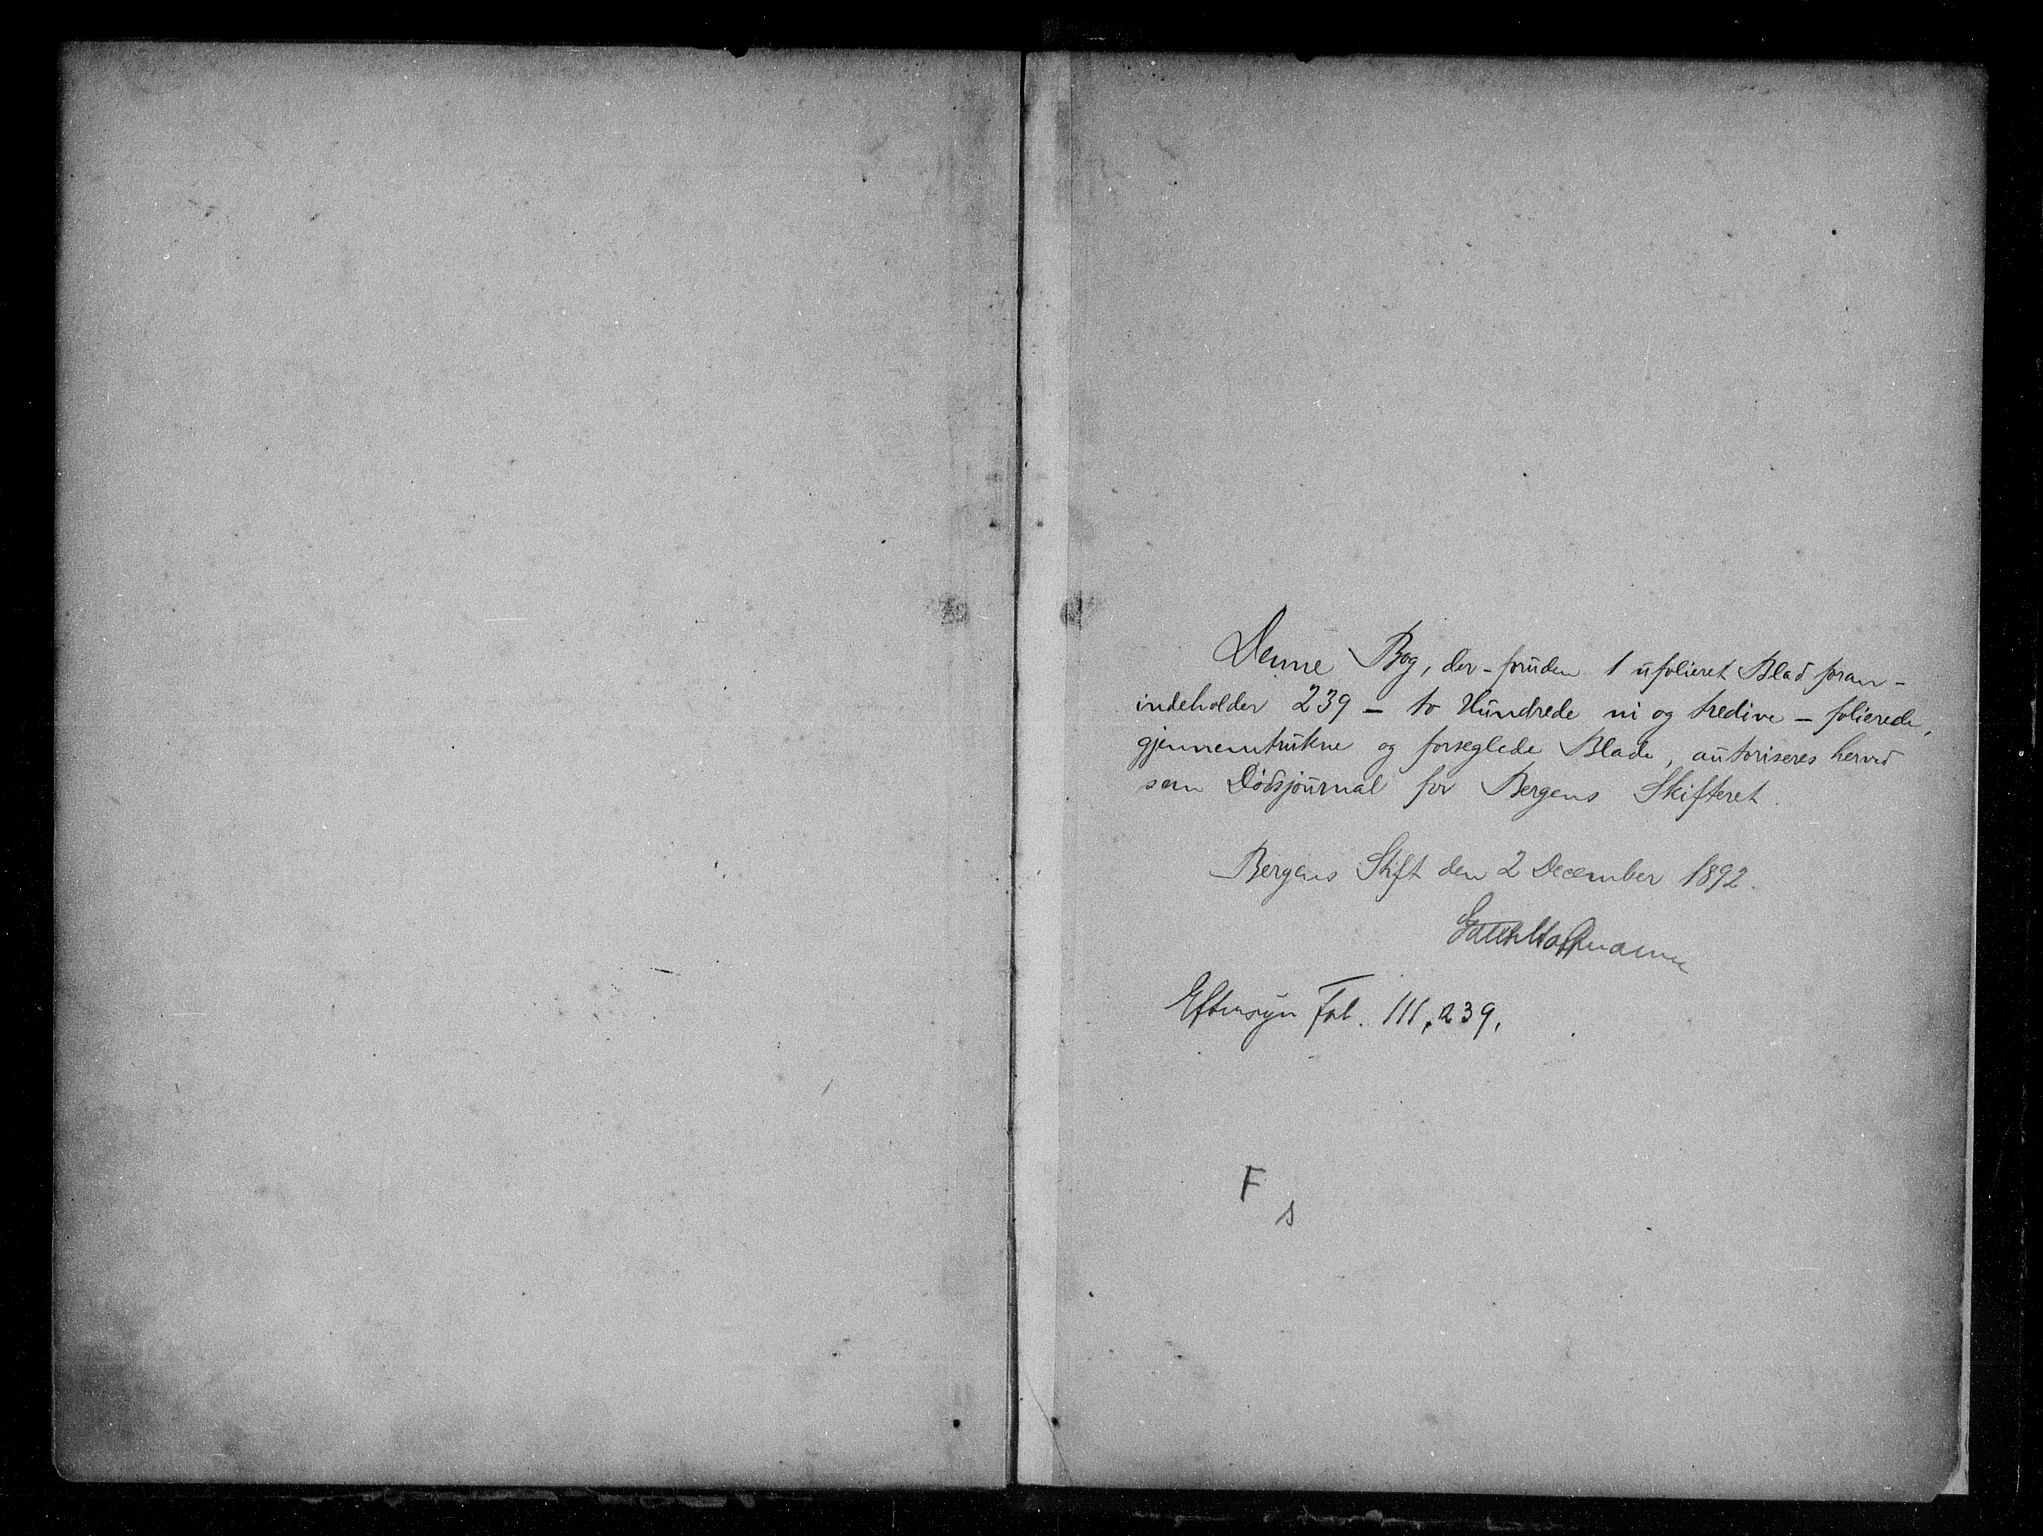 Denne Bog, der - foruden 1 ufolieret Blad foran -
indeholder 239 - to Hundrede ni og tredive - folierede,
gjennemtrukne og forseglede Blade, autoriseres herved
som Dødsjournal for Bergens Skifteret.
Bergens Stift den 2 December 1892.
Eftersyn Fol. 111, 239,
F
s